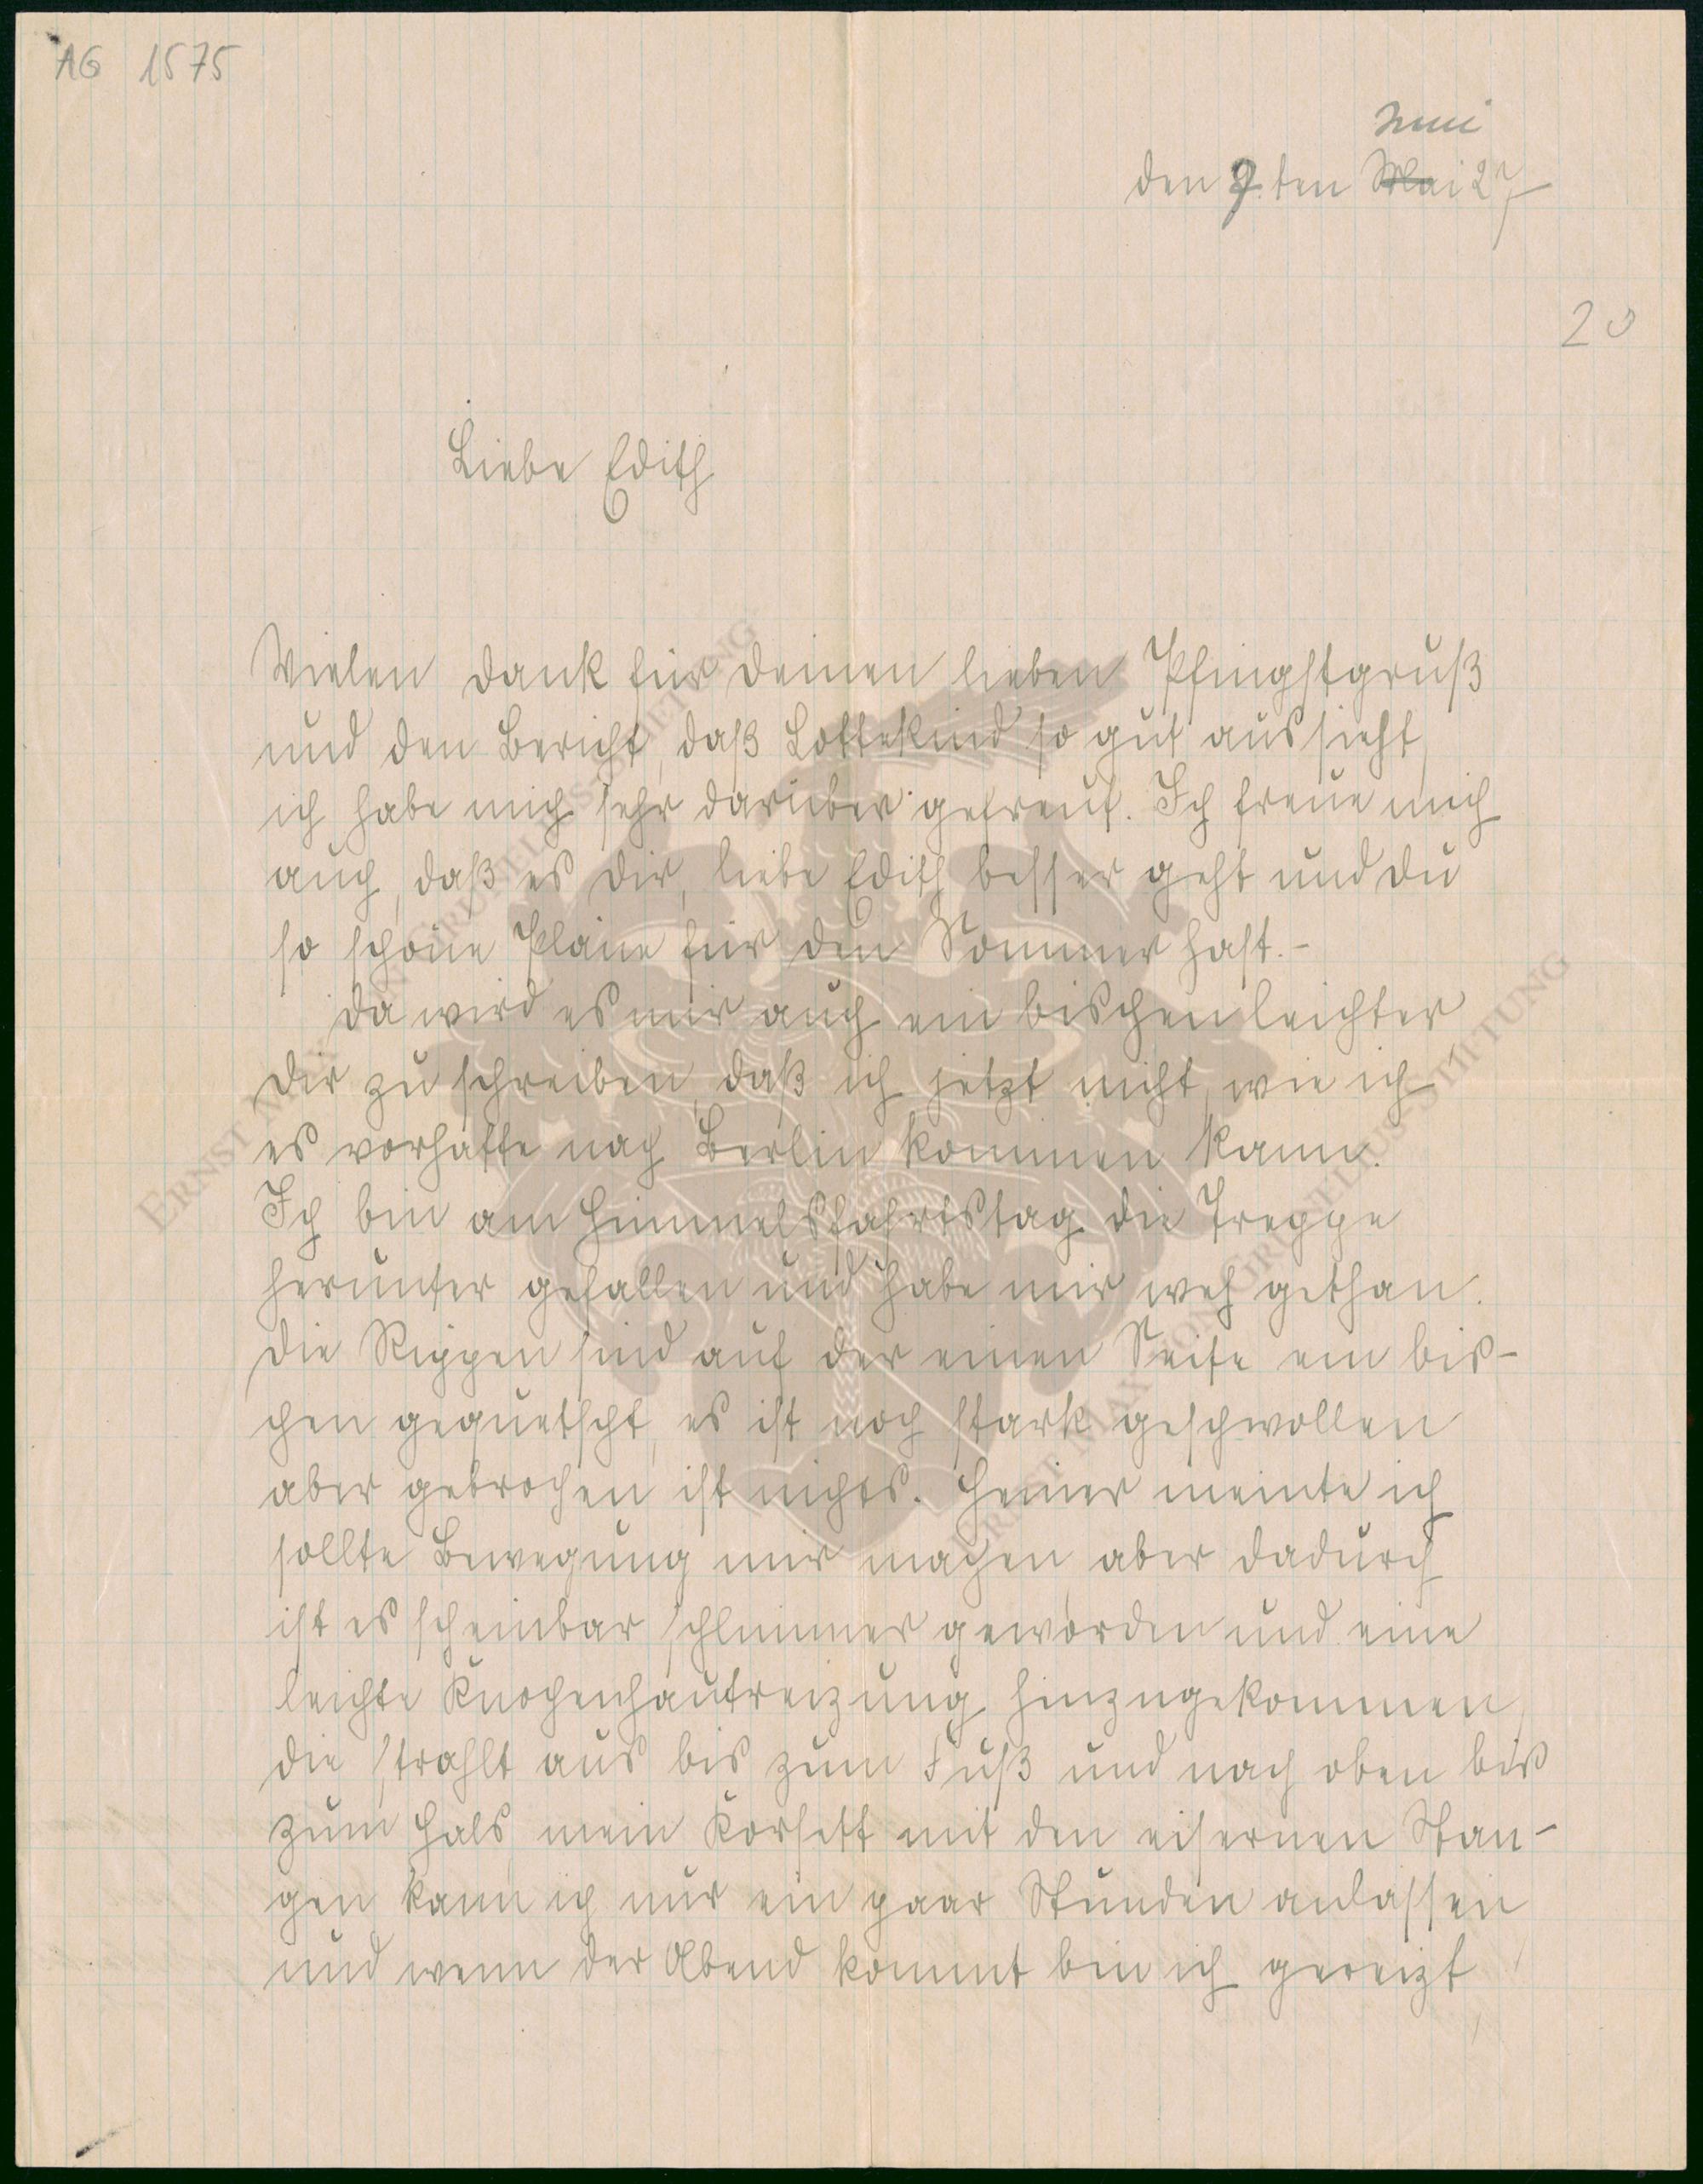 AG 1575
Juni
den 9ten Mai 27
20
Liebe Edith
Vielen Dank für Deinen lieben Pfingstgruß
und den Bericht, daß Lottekind so gut aussieht,
ich habe mich sehr darüber gefreut. Ich freue mich
auch, daß es Dir, liebe Edith besser geht und Du
so schöne Pläne für den Sommer hast.-
Da wird es mir auch ein bischen leichter
Dir zu schreiben, daß ich jetzt nicht, wie ich
es vorhatte nach Berlin kommen kann.
Ich bin am Himmelsfahrtstag die Treppe
herunter gefallen und habe mir weh gethan.
Die Rippen sind auf der einen Seite ein bis-
chen gequetscht, es ist noch stark geschwollen
aber gebrochen ist nichts. Heiner meinte ich
sollte Bewegung mir machen aber dadurch
ist es scheinbar schlimmer geworden und eine
leichte Knochenhautreizung hinzugekommen,
die strahlt aus bis zum Fuß und nach oben bis
zum Hals, mein Korsett mit den eisernen Stan-
gen kann ich nur ein paar Stunden anlassen
und wenn der Abend kommt bin ich gereizt
ERNST MAX VON GRUNELIUS-STIFTUNG
ERNST MAX VON GRUNELIUS-STIFTUNG